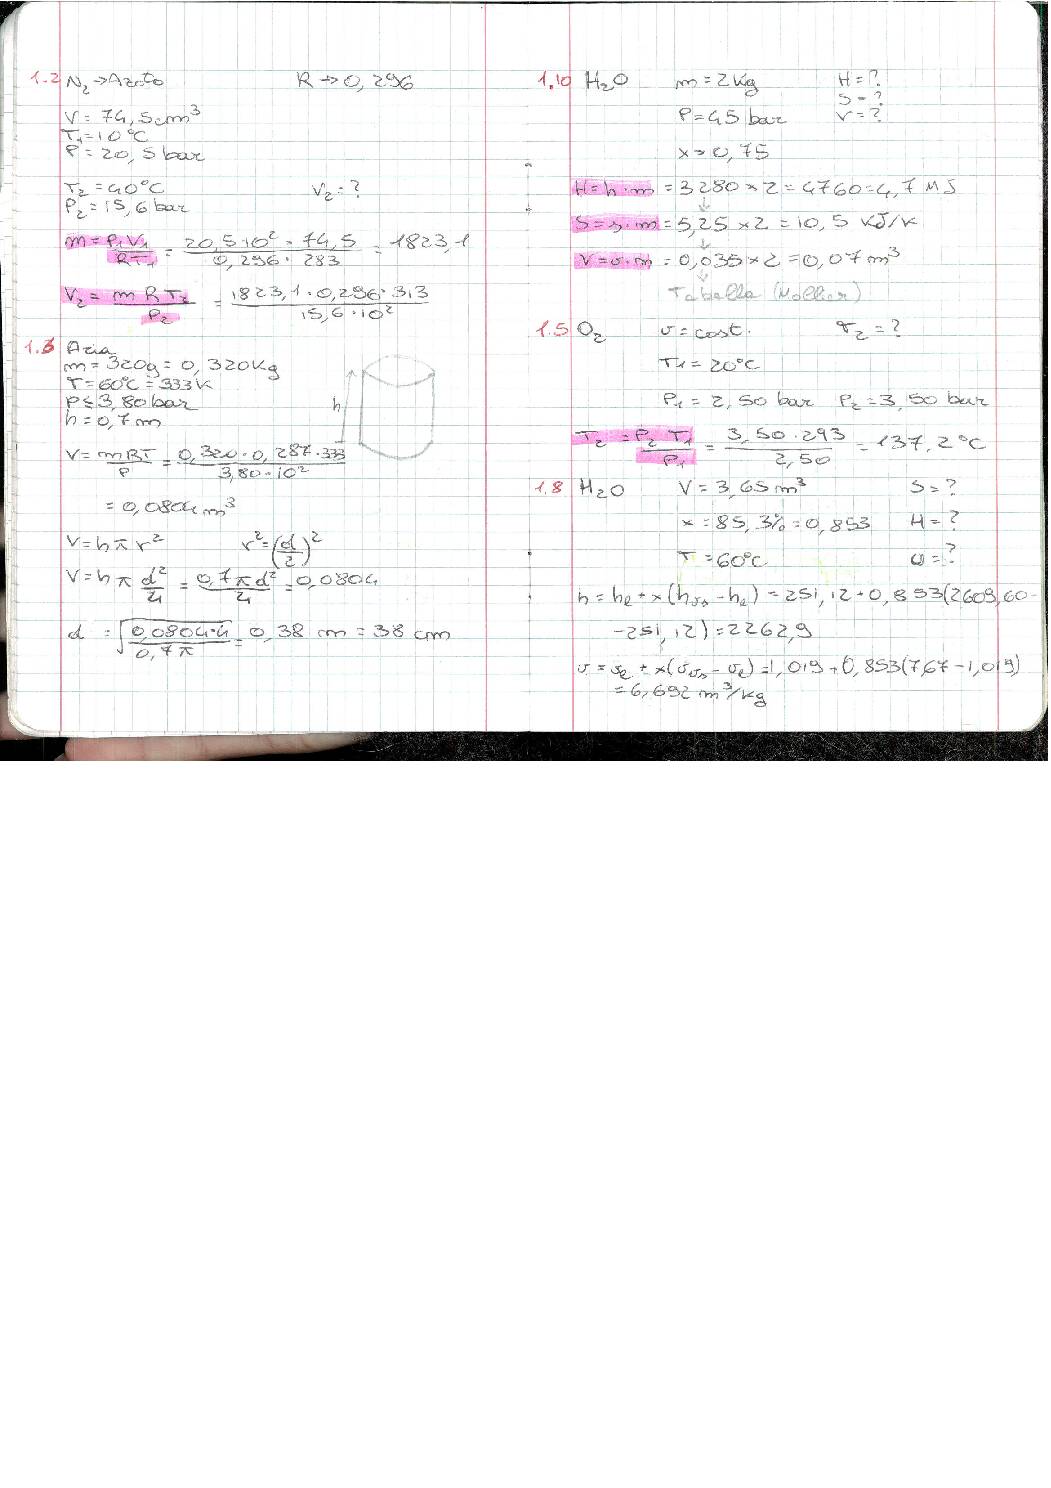 1.2 N₂ → Azoto R → 0,296
V = 74,5 cm³
T₁ = 10°C
P = 20,5 bar
T₂ = 40°C V₂ = ?
P₂ = 15,6 bar
m = P₁V₁/RT₁ = 20,5·10²·74,5/0,296·283 = 1823,1
V₂ = m R T₂/P₂ = 1823,1·0,296·313/15,6·10²
1.3 Aria
m = 320g = 0,320 Kg
T = 60°C = 333 K
P ≤ 3,80 bar
h = 0,7 m
h
V = mRT/P = 0,320·0,287·333/3,80·10²
= 0,0804 m³
V = h π r² r² = (d/2)²
V = h π d²/4 = 0,7 π d²/4 = 0,0804
d = √(0,0804·4/0,7π) = 0,38 m = 38 cm
1.10 H₂O m = 2 Kg H = ?
S = ?
P = 45 bar V = ?
x → 0,75
H = h·m = 3280 × 2 = 4760 = 4,7 MJ
S = s·m = 5,25 × 2 = 10,5 KJ/K
V = v·m = 0,035 × 2 = 0,07 m³
Tabella (Mollier)
1.5 O₂ v = cost. T₂ = ?
T₁ = 20°C
P₁ = 2,50 bar P₂ = 3,50 bar
T₂ = P₂ T₁/P₁ = 3,50·293/2,50 = 137,2°C
1.8 H₂O V = 3,65 m³ S = ?
x = 85,3% = 0,853 H = ?
T = 60°C U = ?
h = hₑ + x(hᵥₛ - hₑ) = 251,12 + 0,853(2609,60 -
- 251,12) = 2262,9
v = vₑ + x(vᵥₛ - vₑ) = 1,019 + 0,853(7,67 - 1,019)
= 6,692 m³/kg